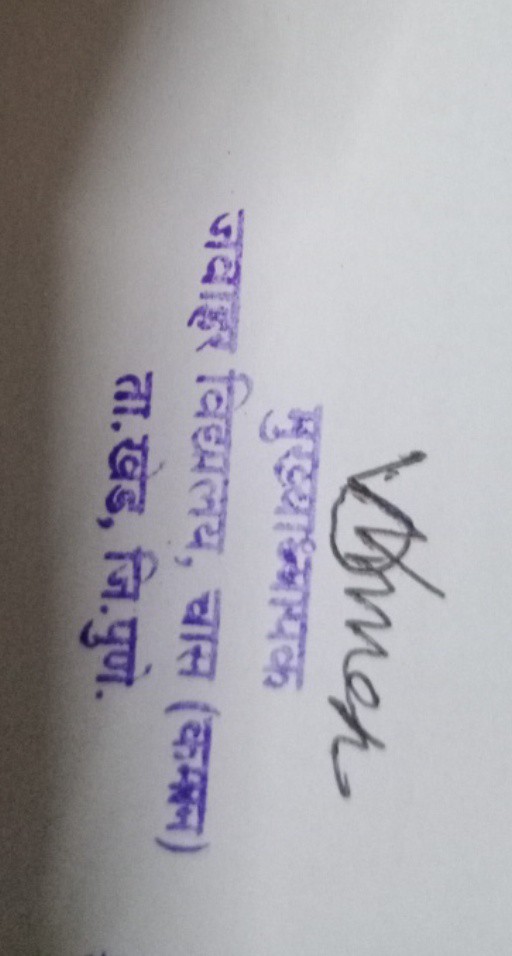 मुख्याध्यापक
जवाहर विद्यालय, चास (कमान)
ता.खेड, जि.पुणे.